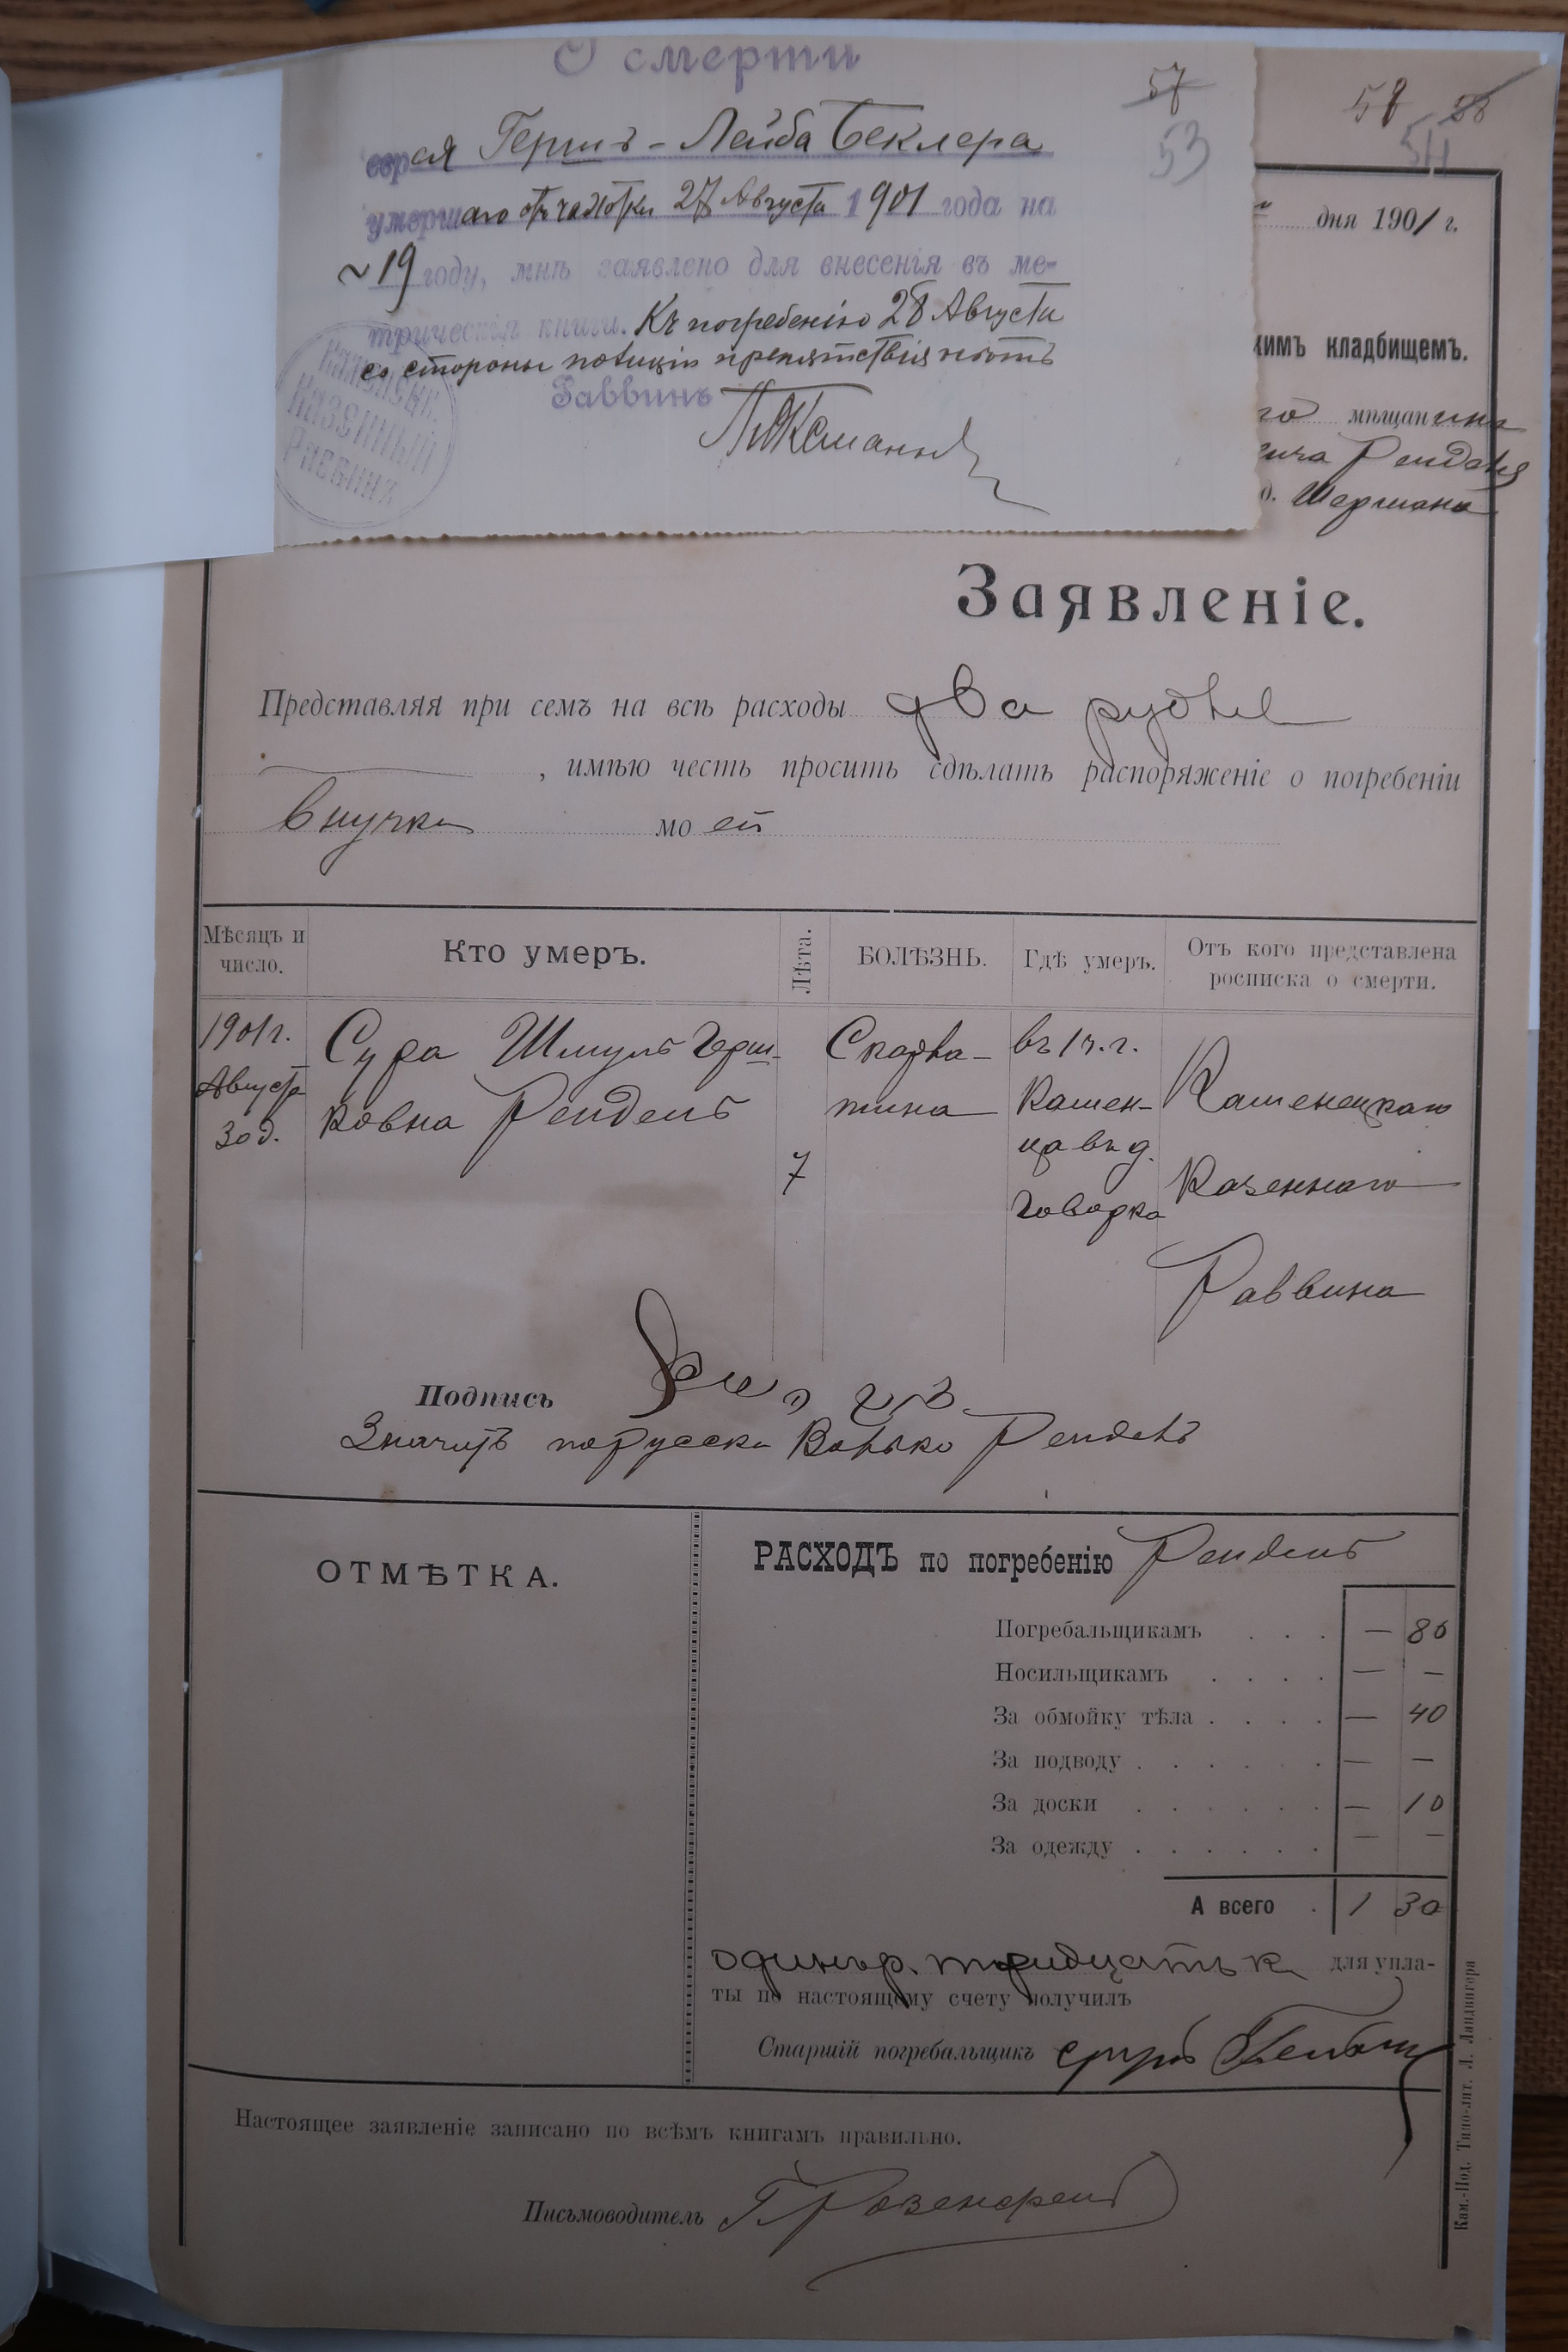 О смерти
57
53
еврея Герша-Лейба Беклера
умершаго отъ чахотки 27 Августа 1901 года на
19 году, мнѣ заявлено для внесенія въ ме-
трическія книги. Къ погребенію 28 Августа
со стороны полиціи препятствія нѣтъ
Раввинъ
Казенный
Раввинъ
58
54
дня 1901 г.
кимъ кладбищемъ.
го мѣщанина
вича Рендель
д. Шермана
Заявленіе.
Представляя при семъ на всѣ расходы два рубля
, имѣю честь просить сдѣлать распоряженіе о погребеніи
внучки моей
Мѣсяцъ и число.
Кто умеръ.
Лѣта.
БОЛѢЗНЬ.
Гдѣ умеръ.
Отъ кого представлена росписка о смерти.
1901 г.
Августа
30 д.
Сура Шмуль Герш-
ковна Рендель
7
Скарла-
тина
въ 1 ч. г.
Камен-
ца въ д.
Говорка
Каменецкаго
Казеннаго
Раввина
Подпись
Значитъ порусски Волько Рендель
ОТМѢТКА.
РАСХОДЪ по погребенію Рендель
Погребальщикамъ . . . — 80
Носильщикамъ . . . . — —
За обмойку тѣла . . . . — 40
За подводу . . . . . . — —
За доски . . . . . . — 10
За одежду . . . . . . — —
А всего . 1 30
одинъ р. тридцать к. для упла-
ты по настоящему счету получилъ
Старшій погребальщикъ
Настоящее заявленіе записано по всѣмъ книгамъ правильно.
Письмоводитель Г Розенфельд
Кам.-Под. Типо-лит. Л. Ландвигера